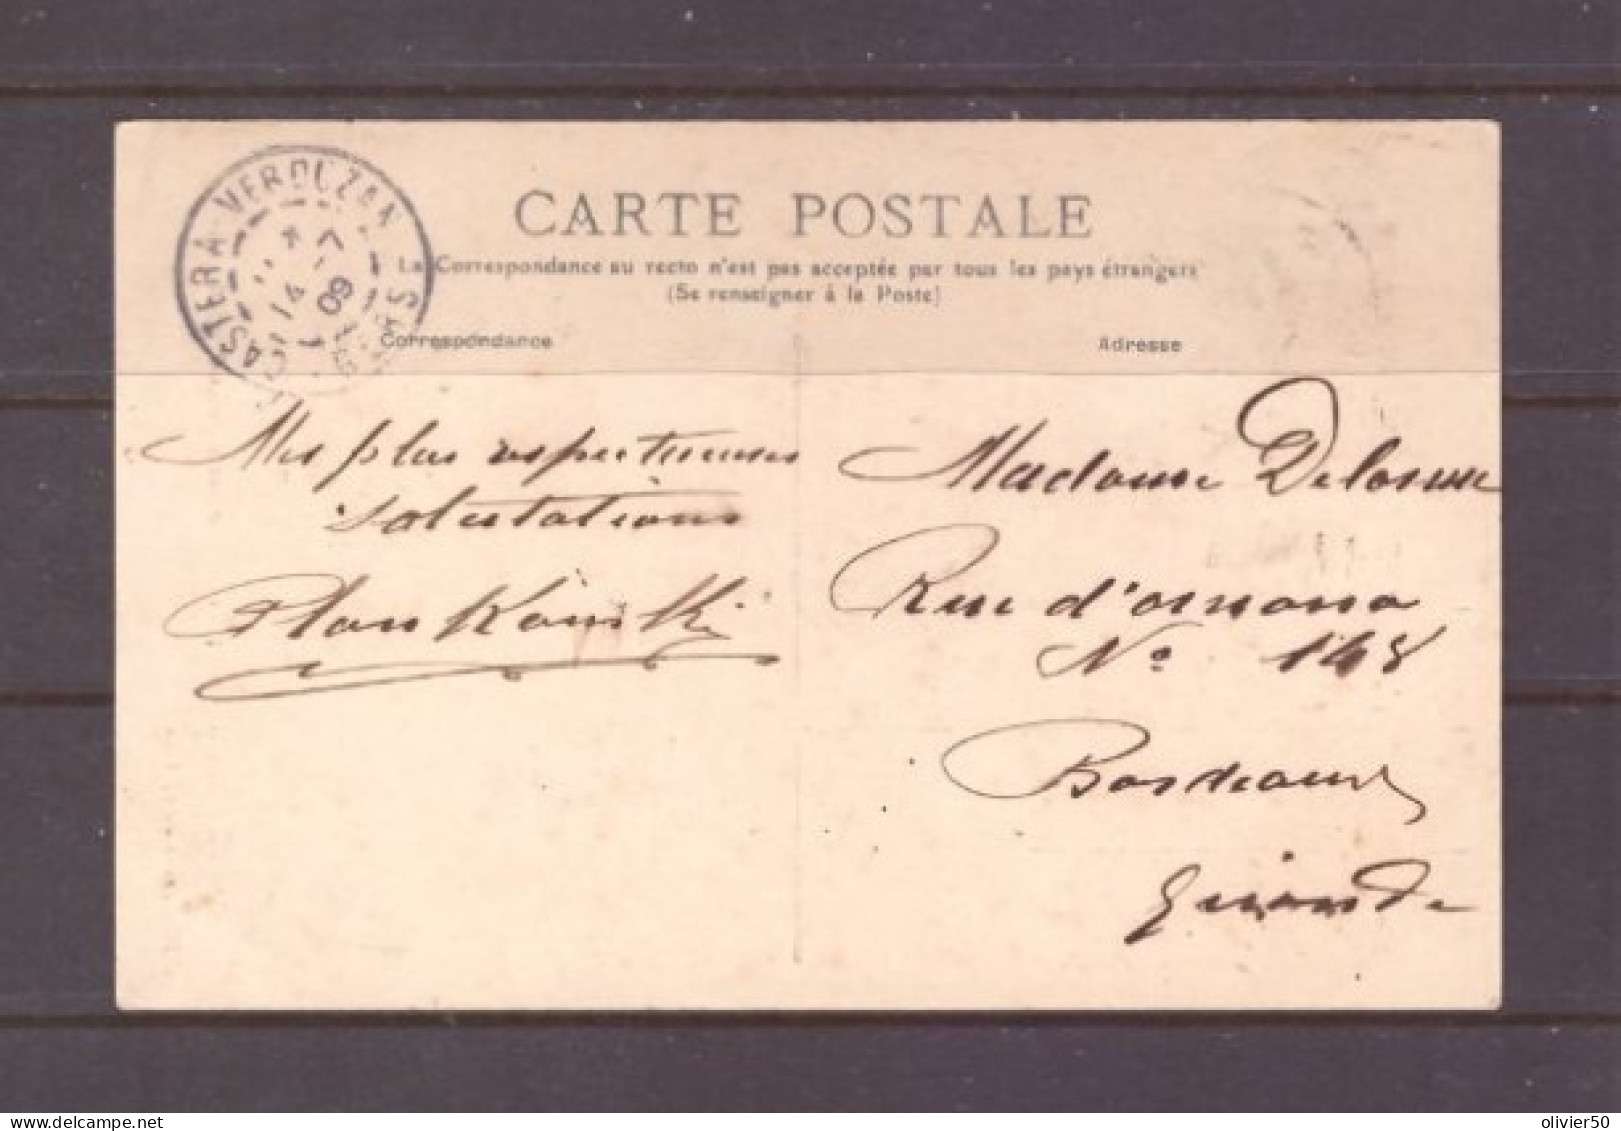 CASTERA-VEROUZAN
09
CARTE POSTALE
La Correspondance au recto n'est pas acceptée par tous les pays étrangers
(Se renseigner à la Poste)
Correspondance
Adresse
Mes plus respectueuses
salutations
Madame
Rue d'ornano
N° 148
Bordeaux
Gironde
olivier50